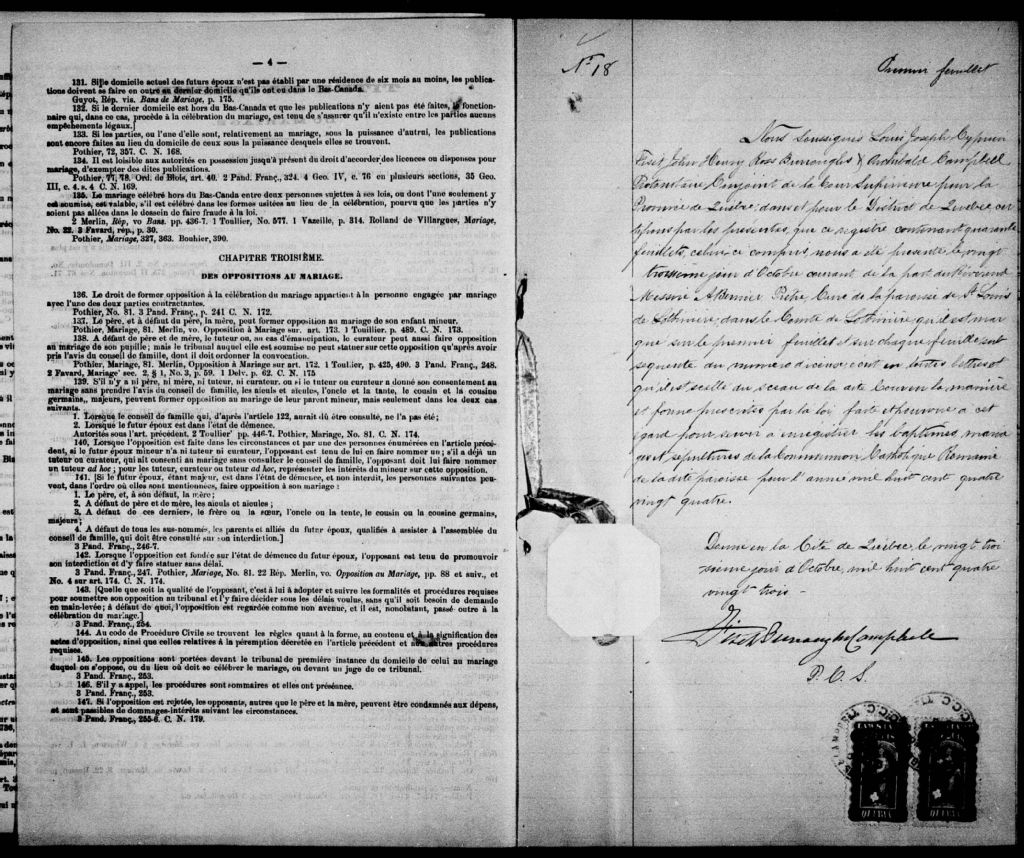 — 4 —
131. Si le domicile actuel des futurs époux n'est pas établi par une résidence de six mois au moins, les publica-
tions doivent se faire en outre au dernier domicile qu'ils ont eu dans le Bas-Canada.
Guyot, Rép. vis. Bans de Mariage, p. 175.
132. Si le dernier domicile est hors du Bas-Canada et que les publications n'y aient pas été faites, le fonction-
naire qui, dans ce cas, procède à la célébration du mariage, est tenu de s'assurer qu'il n'existe entre les parties aucuns
empêchements légaux.]
133. Si les parties, ou l'une d'elle sont, relativement au mariage, sous la puissance d'autrui, les publications
sont encore faites au lieu du domicile de ceux sous la puissance desquels elles se trouvent.
Pothier, 72, 357. C. N. 168.
134. Il est loisible aux autorités en possession jusqu'à présent du droit d'accorder des licences ou dispenses pour
mariage, d'exempter des dites publications.
Pothier, 77, 78. Ord. de Blois, art. 40. 2 Pand. Franç., 324. 4 Geo. IV, c. 76 en plusieurs sections, 35 Geo.
III, c. 4. s. 4 C. N. 169.
135. Le mariage célébré hors du Bas-Canada entre deux personnes sujettes à ses lois, ou dont l'une seulement y
est soumise, est valable, s'il est célébré dans les formes usitées au lieu de la célébration, pourvu que les parties n'y
soient pas allées dans le dessein de faire fraude à la loi.
2 Merlin, Rép, vo Bans. pp. 436-7. 1 Toullier, No. 577. 1 Vazeille, p. 314. Rolland de Villargues, Mariage,
No. 22. 3 Favard, rép., p. 30.
Pothier, Mariage, 327, 363. Bouhier, 390.
CHAPITRE TROISIÈME.
DES OPPOSITIONS AU MARIAGE.
136. Le droit de former opposition à la célébration du mariage appartient à la personne engagée par mariage
avec l'une des deux parties contractantes.
Pothier, No. 81. 3 Pand. Franç., p. 241 C. N. 172.
137. Le père, et à défaut du père, la mère, peut former opposition au mariage de son enfant mineur.
Pothier, Mariage, 81. Merlin, vo. Opposition à Mariage sur. art. 173. 1 Touillier. p. 489. C. N. 173.
138. A défaut de père et de mère, le tuteur ou, au cas d'émancipation, le curateur peut aussi faire opposition
au mariage de son pupille; mais le tribunal auquel elle est soumise ne peut statuer sur cette opposition qu'après avoir
pris l'avis du conseil de famille, dont il doit ordonner la convocation.
Pothier, Mariage, 81. Merlin, Opposition à Mariage sur art. 172. 1 Toullier, p. 425, 490. 3 Pand. Franç., 248.
2 Favard, Mariage' sec. 2. § 1, No. 3, p. 59. 1 Delv. p. 62. C. N. 175
139. S'il n'y a ni père, ni mère, ni tuteur, ni curateur, ou si le tuteur ou curateur a donné son consentement au
mariage sans prendre l'avis du conseil de famille, les aïeuls et aïeules, l'oncle et la tante, le cousin et la cousine
germains, majeurs, peuvent former opposition au mariage de leur parent mineur, mais seulement dans les deux cas
suivants.
1. Lorsque le conseil de famille qui, d'après l'article 122, aurait dû être consulté, ne l'a pas été;
2. Lorsque le futur époux est dans l'état de démence.
Autorités sous l'art. précédent. 2 Toullier' pp. 446-7. Pothier, Mariage, No. 81. C. N. 174.
140. Lorsque l'opposition est faite dans les circonstances et par une des personnes énumérées en l'article précé-
dent, si le futur époux mineur n'a ni tuteur ni curateur, l'opposant est tenu de lui en faire nommer un; s'il a déjà un
tuteur ou curateur, qui ait consenti au mariage sans consulter le conseil de famille, l'opposant doit lui faire nommer
un tuteur ad hoc; pour les tuteur, curateur ou tuteur ad hoc, représenter les intérêts du mineur sur cette opposition.
141. [Si le futur époux, étant majeur, est dans l'état de démence, et non interdit, les personnes suivantes peu-
vent, dans l'ordre où elles sont mentionnées, faire opposition à son mariage:
1. Le père, et, à son défaut, la mère;
2. A défaut de père et de mère, les aïeuls et aïeules;
3. A défaut de ces derniers, le frère ou la sœur, l'oncle ou la tente, le cousin ou la cousine germains,
majeurs;
4. A défaut de tous les sus-nommés, les parents et alliés du futur époux, qualifiés à assister à l'assemblée du
conseil de famille, qui doit être consulté sur son interdiction.]
3 Pand. Franç., 246-7.
142. Lorsque l'opposition est fondée sur l'état de démence du futur époux, l'opposant est tenu de promouvoir
son interdiction et d'y faire statuer sans délai.
3 Pand. Franç., 247. Pothier, Mariage, No. 81. 22 Rép. Merlin, vo. Opposition au Mariage, pp. 88 et suiv., et
No. 4 sur art. 174. C. N. 174.
143. [Quelque que soit la qualité de l'opposant, c'est à lui à adopter et suivre les formalités et procédures requises
pour soumettre son opposition au tribunal et l'y faire décider sous les délais voulus, sans qu'il soit besoin de demande
en main-levée; à défaut de quoi, l'opposition est regardée comme non avenue, et il est, nonobstant, passé outre à la
célébration du mariage.]
3 Pand. Franç., 254.
144. Au code de Procédure Civile se trouvent les règles quant à la forme, au contenu et à la signification des
actes d'opposition, ainsi que celles relatives à la péremption décrétée en l'article précédent et aux autres procédures
requises.
145. Les oppositions sont portées devant le tribunal de première instance du domicile de celui au mariage
duquel on s'oppose, ou du lieu où doit se célébrer le mariage, ou devant un juge de ce tribunal.
3 Pand. Franç., 253.
146. S'il y a appel, les procédures sont sommaires et elles ont préséance.
3 Pand. Franç., 253.
147. Si l'opposition est rejetée, les opposants, autres que le père et la mère, peuvent être condamnés aux dépens,
et sont passibles de dommages-intérêts suivant les circonstances.
3 Pand. Franç., 255-6. C. N. 179.
No 18
Premier feuillet
Nous Soussignés Louis Joseph Cyprien
Fiset John Henry Ross Burroughs & Archibald Campbell
Protonotaire Conjoint de la Cour Supérieure pour la
Province de Québec, dans et pour le District de Québec cer
tifions par les présentes, que ce registre contenant quarante
feuillets, celui-ci compris, nous a été présenté le vingt
troisième jour d'Octobre courant de la part du Révérend
Messire A. Bernier Prêtre, Curé de la paroisse de St Louis
de Lotbinière, dans le Comté de Lotbinière, qu'il est mar
qué sur le premier feuillet et sur chaque feuillet sub
séquent du numéro d'icelui, écrit en toutes lettres et
qu'il est scellé du sceau de la dite Cour en la manière
et forme prescrites par la loi faite et pourvue à cet
égard pour servir à enregistrer les baptêmes, maria
ges et sépultures de la Communion Catholique Romaine
de la dite paroisse pour l'année mil huit cent quatre
vingt quatre.
Donné en la Cité de Québec, le vingt troi
sième jour d'Octobre, mil huit cent quatre
vingt trois -
Fiset Burroughs Campbell
P. C. S.
QUEBEC
QUEBEC